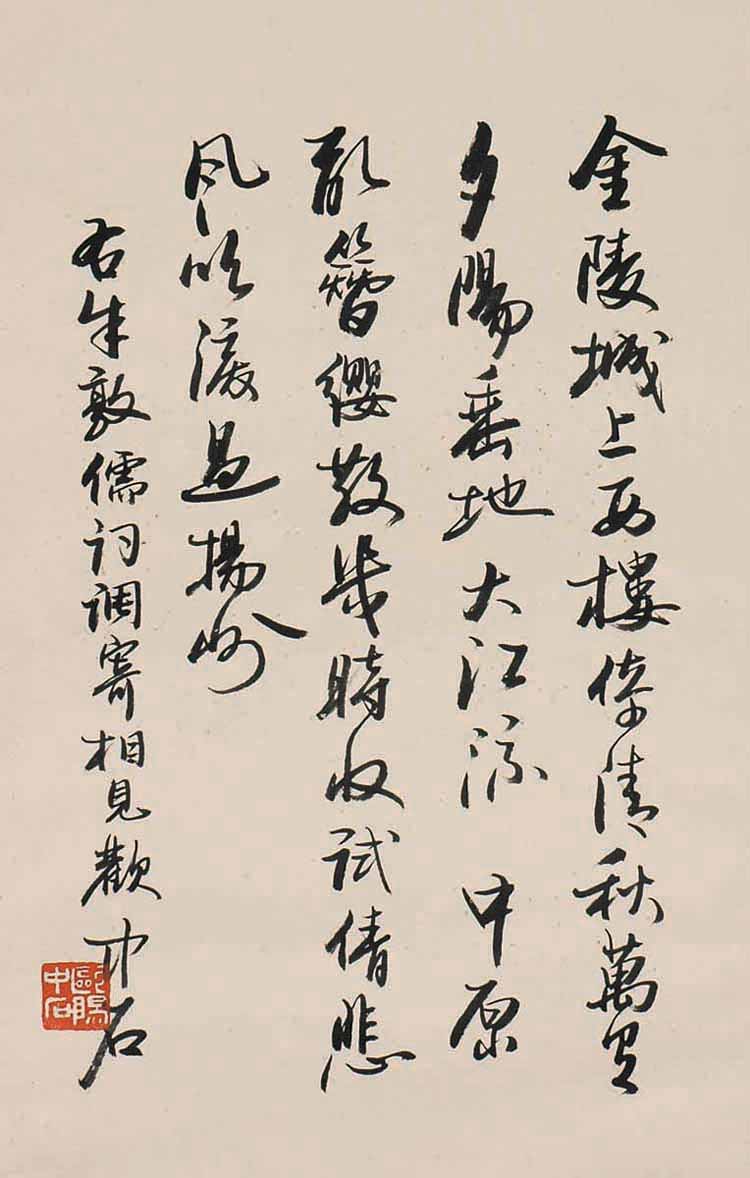 金陵城上西樓倚清秋萬里
夕陽垂地大江流 中原
亂簪纓散幾時收試倩悲
風吹淚過揚州
右朱敦儒詞調寄相見歡 中石
歐陽中石